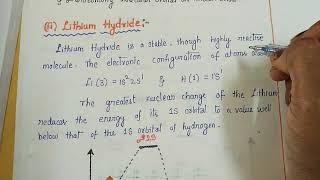 (ii) Lithium Hydride:-
Lithium Hydride is a stable, though highly reactive
molecule. The electronic configuration of atoms
Li (3) = 1S² 2S¹ & H (1) = 1S¹
The greatest nuclear change of the Lithium
reduces the energy of its 1S orbital to a value well
below that of the 1S orbital of hydrogen.